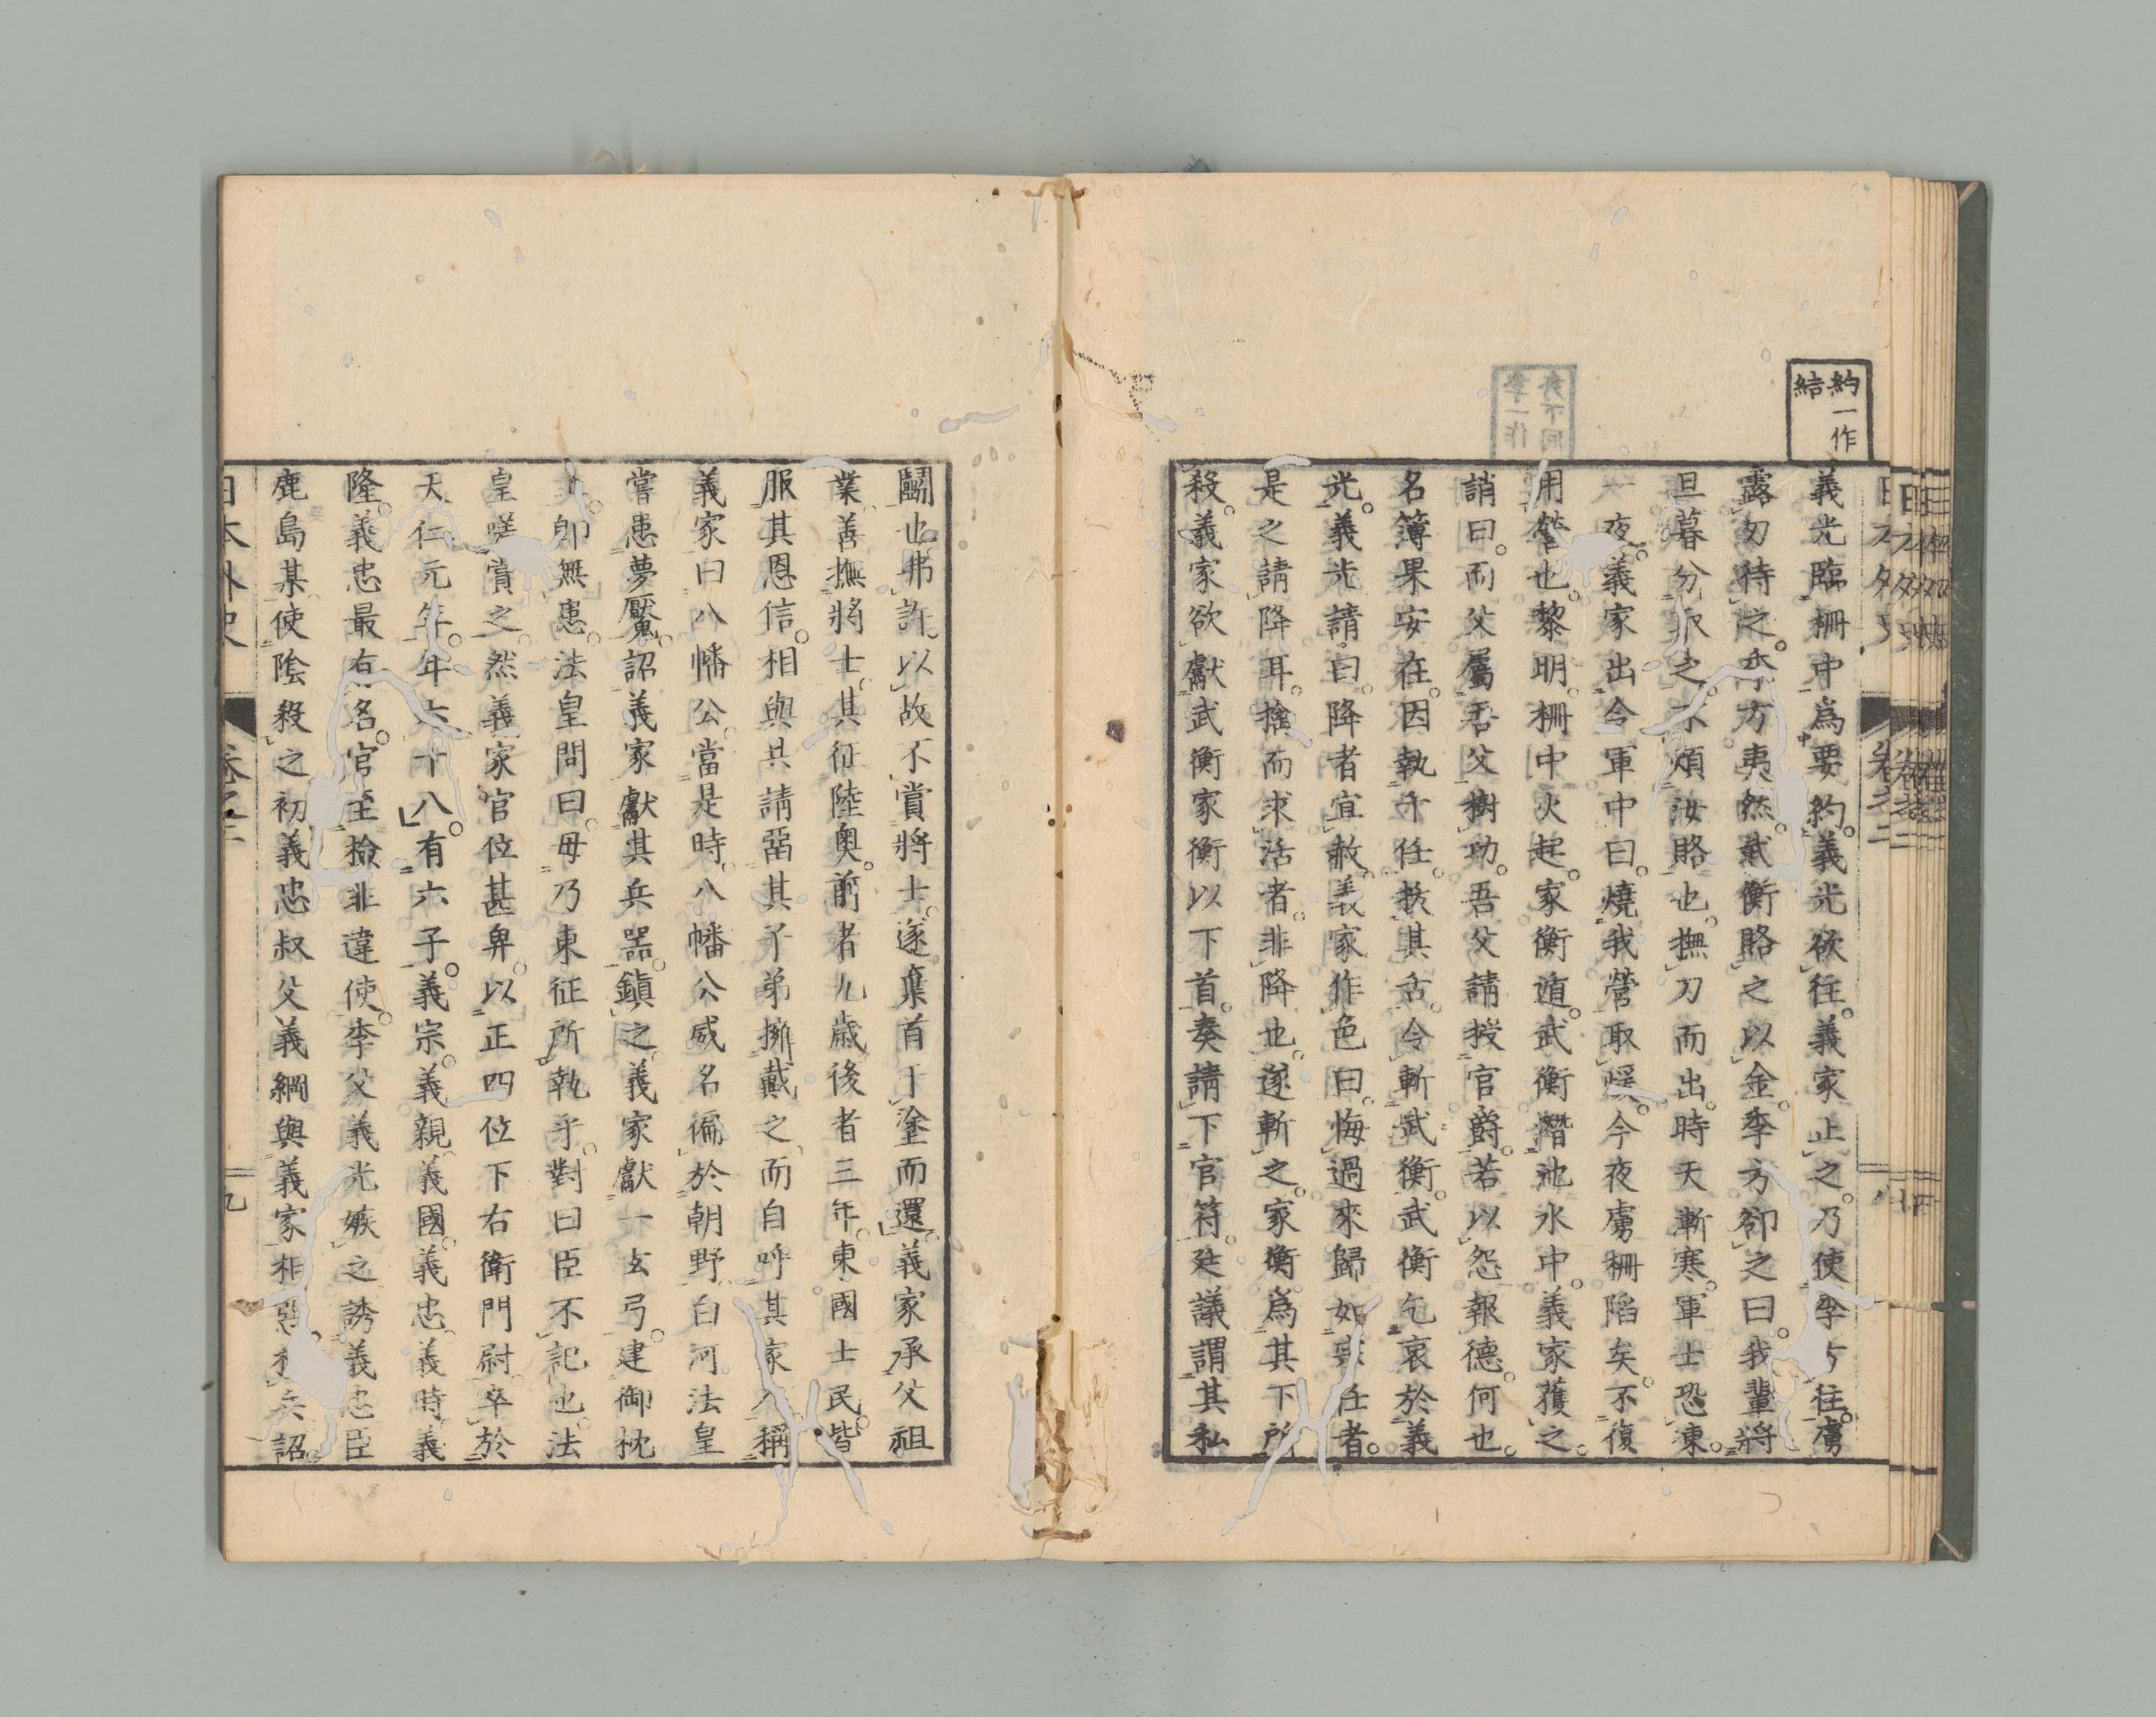 約一作
結
義光臨柵中爲要約。義光欲往。義家止之。乃使季方往。虜
露刃待之。季方夷然。武衡賂之以金。季方卻之曰。我輩將
旦暮分取之。不煩汝賂也。撫刀而出。時天漸寒。軍士恐凍。
一夜。義家出令軍中曰。燒我營取煖。今夜虜柵陷矣。不復
用營也。黎明。柵中火起。家衡遁。武衡潛池水中。義家獲之。
誚曰。而父屬吾父樹功。吾父請授官爵。若以怨報德何也。
名簿果安在。因執千任。拔其舌。令斬武衡。武衡乞哀於義
光。義光請曰。降者宜赦。義家作色曰。悔過來歸如宗任者。
是之請降耳。捨而求活者。非降也。遂斬之。家衡爲其下所
殺。義家欲獻武衡家衡以下首。奏請下官符。廷議謂其私
鬭也弗許。以故不賞將士。遂棄首于塗而還。義家承父祖
業。善撫將士。其征陸奧。前者九歲。後者三年。東國士民。皆
服其恩信。相與共請。留其子弟擁戴之。而自呼其家人。稱
義家曰八幡公。當是時。八幡公威名徧於朝野。白河法皇
嘗患夢魘。詔義家獻其兵器鎭之。義家獻一玄弓。建御枕
上。卽無患。法皇問曰。毋乃東征所執乎。對曰。臣不記也。法
皇嗟賞之。然義家官位甚卑。以正四位下右衛門尉卒於
天仁元年。年六十八。有六子。義宗。義親。義國。義忠。義時。義
隆。義忠最有名。官至檢非違使。季父義光嫉之。誘義忠臣
鹿島某。使陰殺之。初義忠叔父義綱與義家相惡。
兵。詔
日本外史
卷之二
九